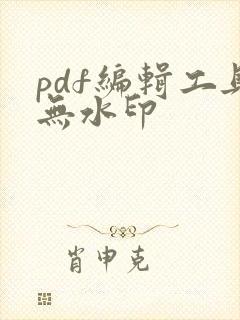 pdf編輯工具
無水印
肖申克